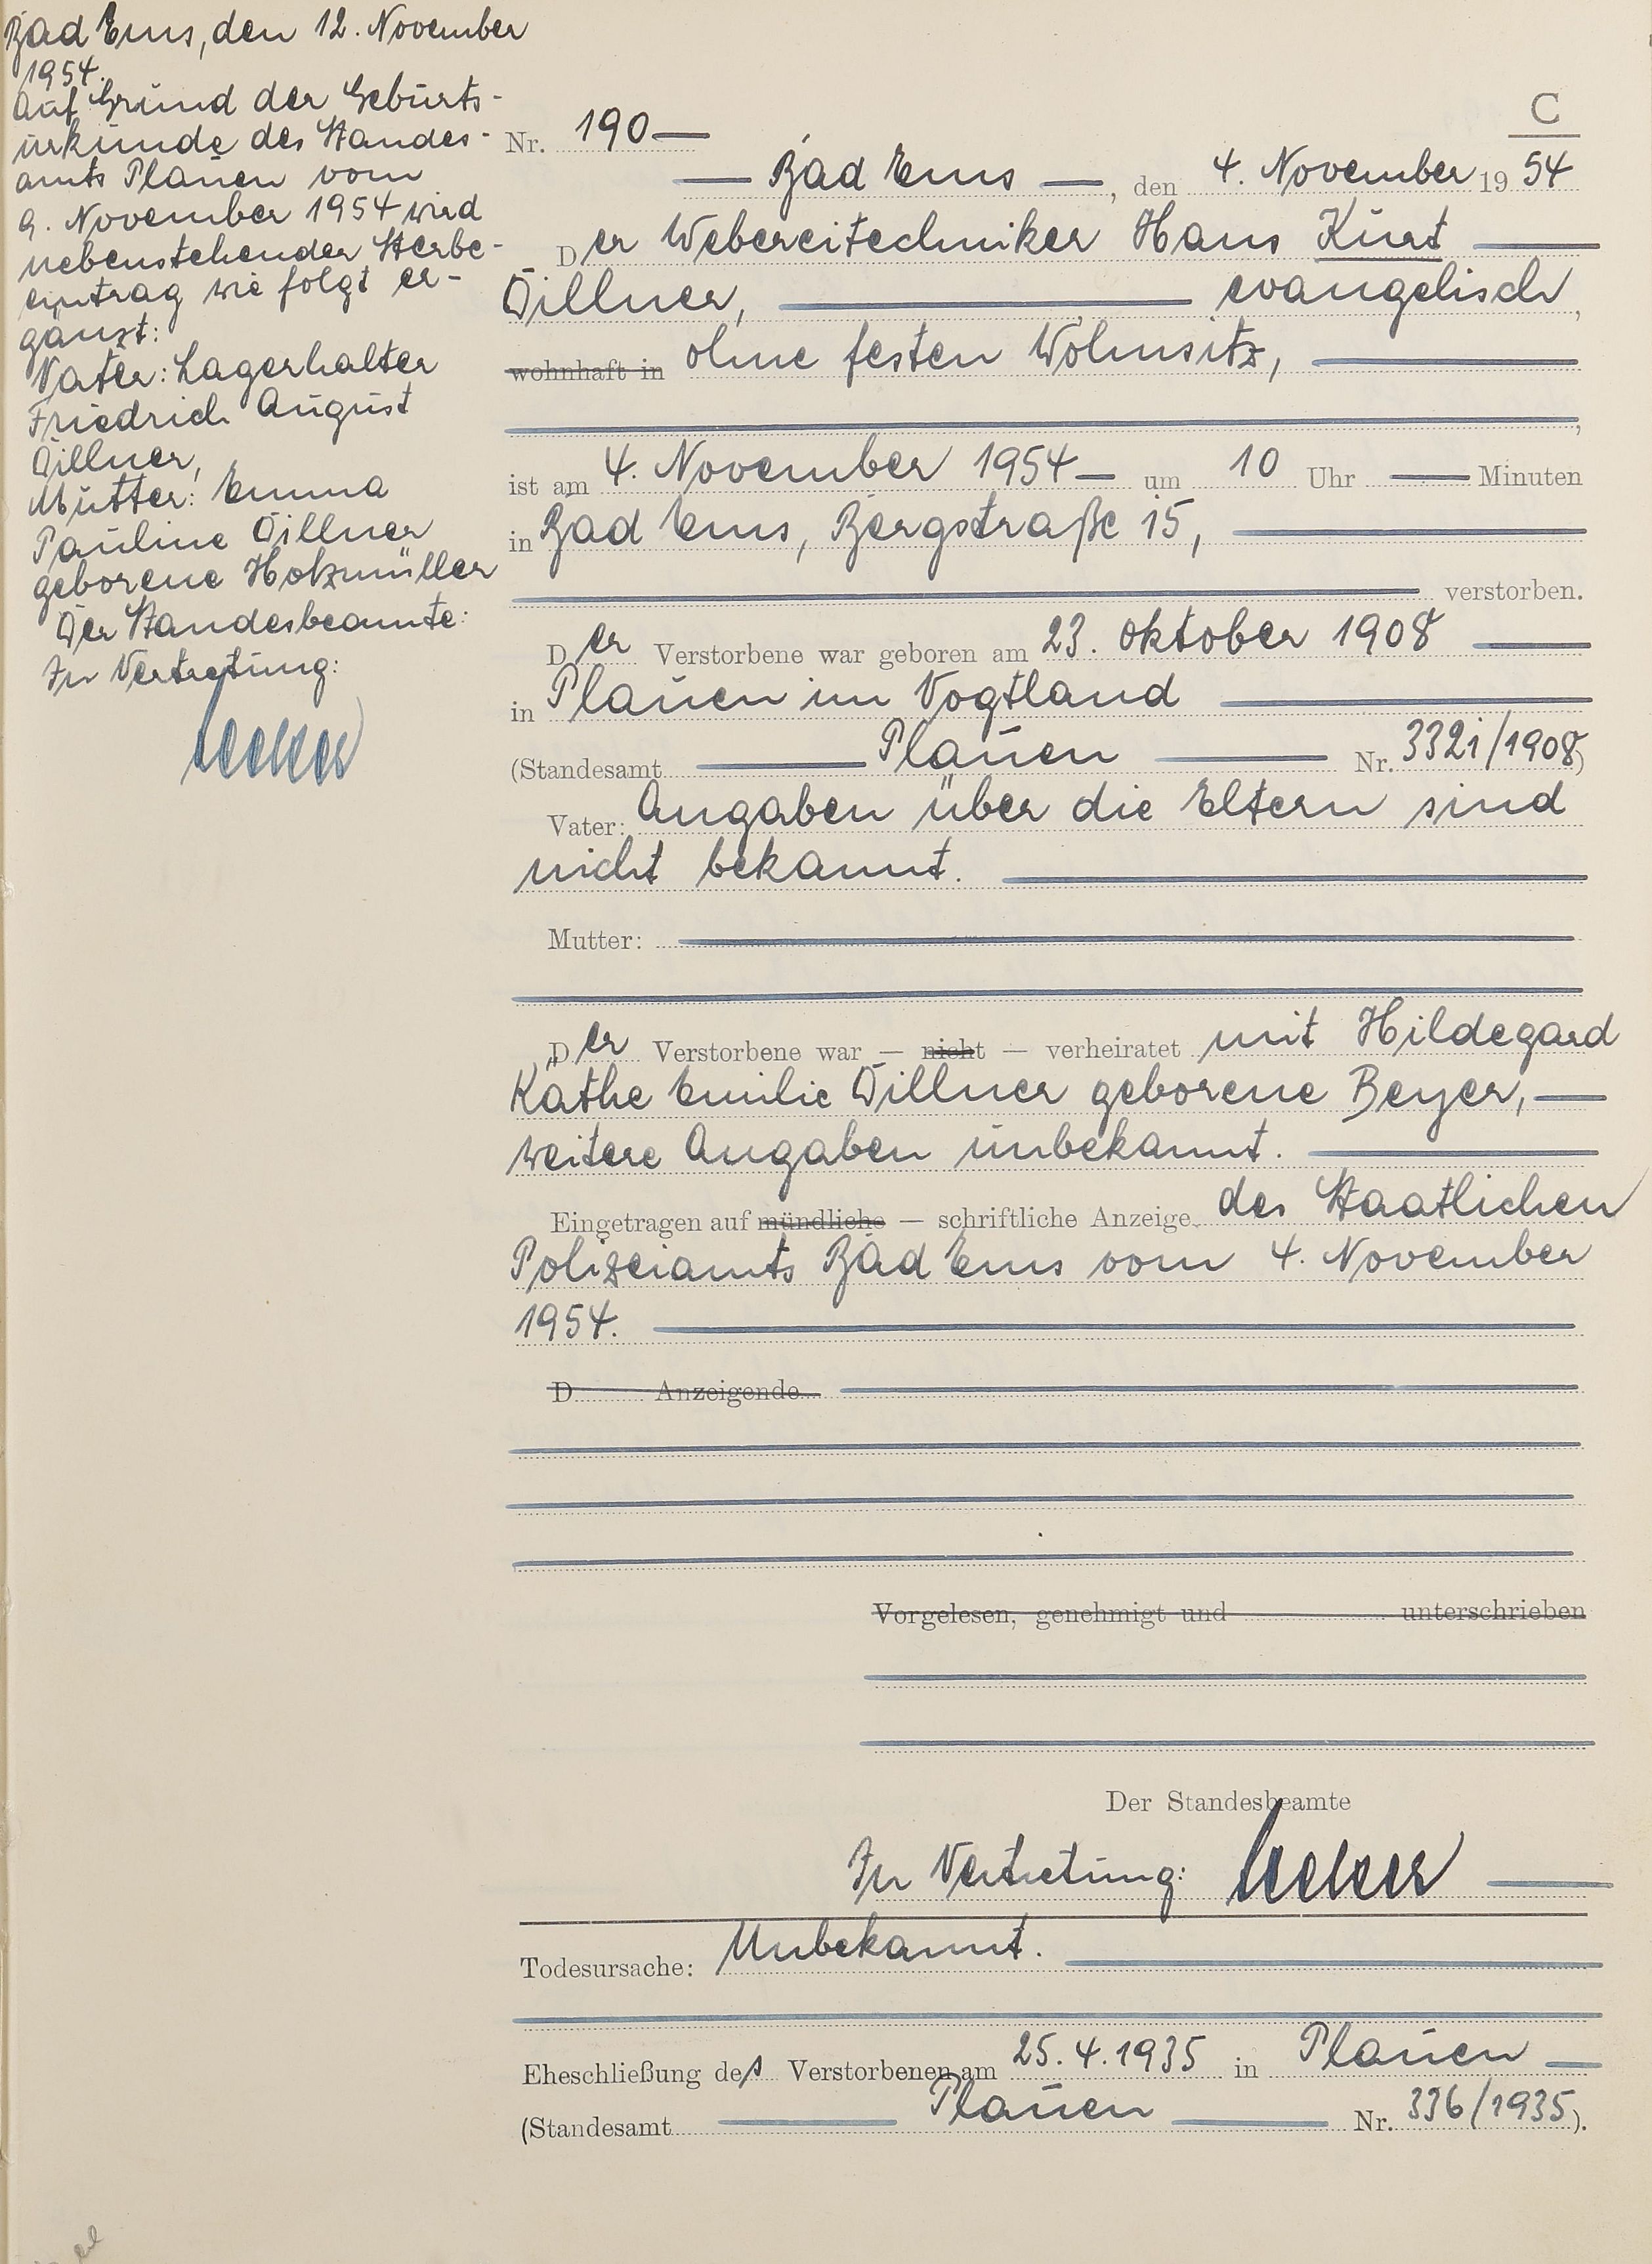 Bad Ems, den 12. November
1954.
Auf Grund der Geburts-
urkunde des Standes-
amts Plauen vom
9. November 1954 wird
nebenstehender Sterbe-
eintrag wie folgt er-
gänzt:
Vater: Lagerhalter
Friedrich August
Dillner,
Mutter: Emma
Pauline Dillner
geborene Holzmüller
Der Standesbeamte:
In Vertretung:
C
Nr. 190
Bad Ems, den 4. November 1954
Der Webereitechniker Hans Kurt
Dillner, evangelisch,
wohnhaft in ohne festen Wohnsitz,
ist am 4. November 1954 um 10 Uhr Minuten
in Bad Ems, Bergstraße 15,
verstorben.
Der Verstorbene war geboren am 23. Oktober 1908
in Plauen im Vogtland
(Standesamt Plauen Nr. 3321/1908)
Vater: Angaben über die Eltern sind
nicht bekannt.
Mutter:
Der Verstorbene war — nicht — verheiratet mit Hildegard
Käthe Emilie Dillner geborene Beyer,
weitere Angaben unbekannt.
Eingetragen auf mündliche — schriftliche Anzeige des Staatlichen
Polizeiamts Bad Ems vom 4. November
1954.
D Anzeigende
Vorgelesen, genehmigt und unterschrieben
Der Standesbeamte
In Vertretung:
Todesursache: Unbekannt.
Eheschließung des Verstorbenen am 25.4.1935 in Plauen
(Standesamt Plauen Nr. 336/1935).